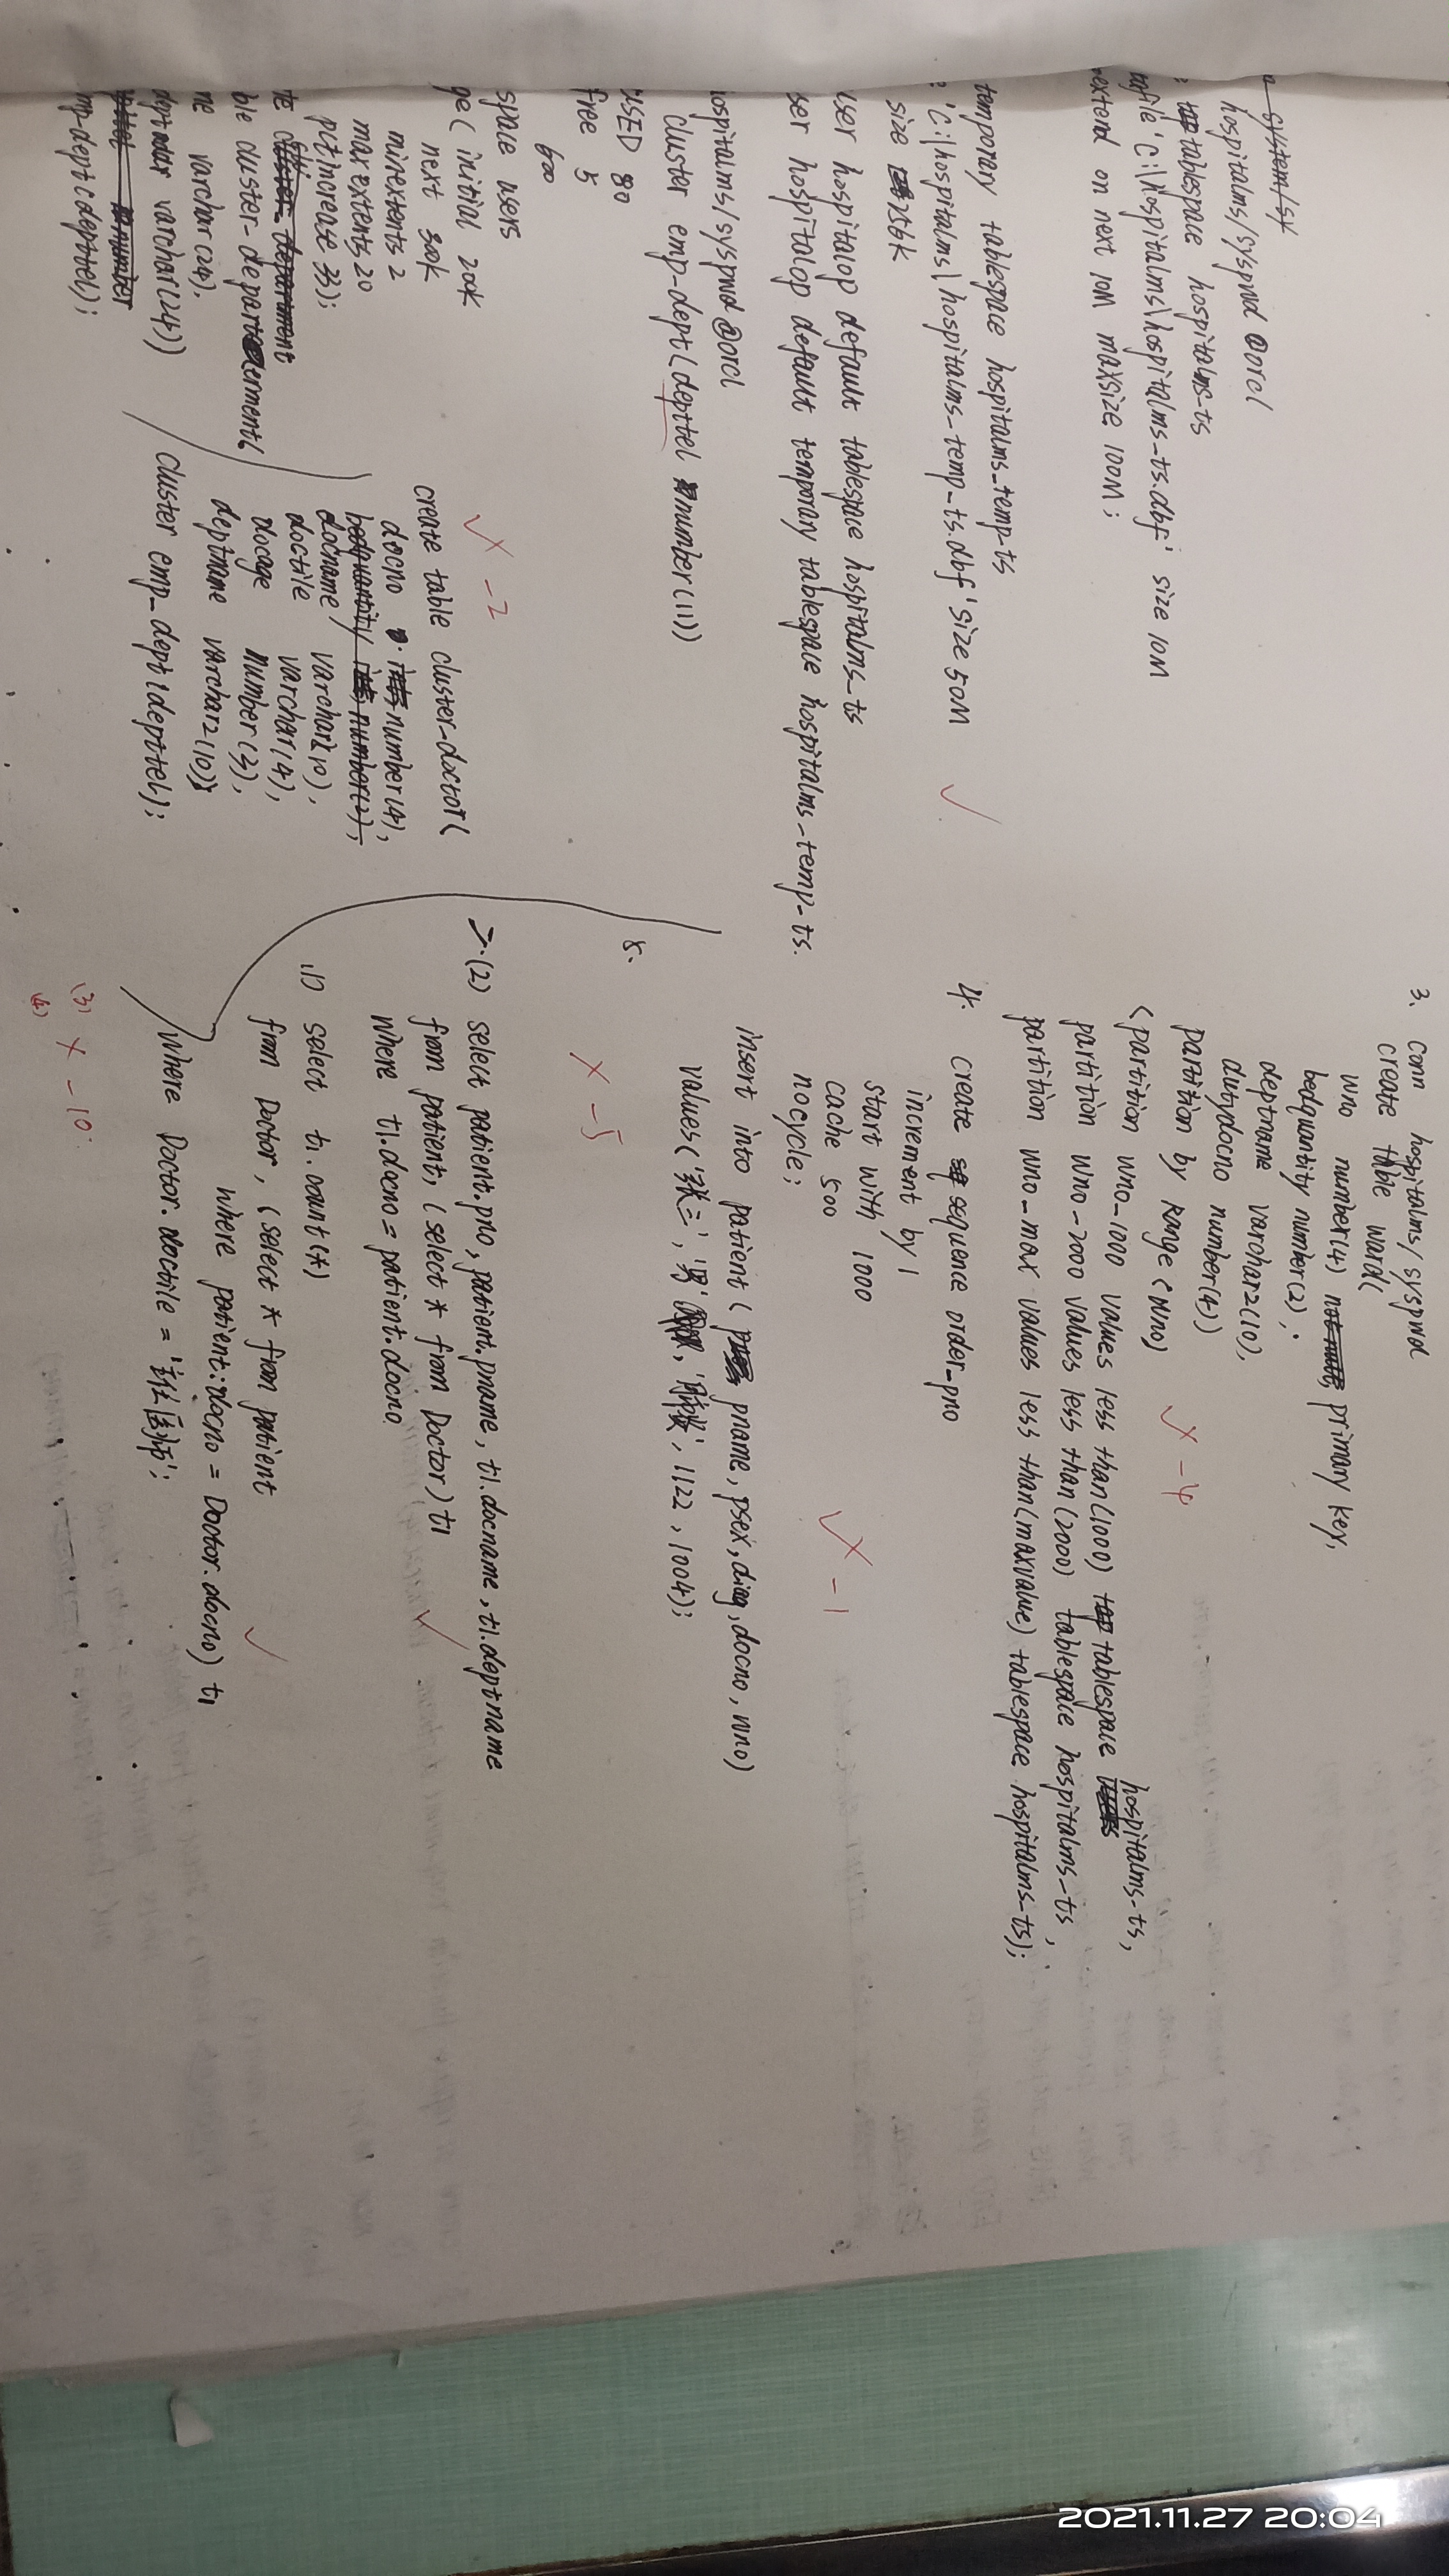 system/sy
hospitalms/syspwd @orcl
tablespace hospitalms-ts
tafile 'C:\hospitalms\hospitalms-ts.dbf' size 10M
extend on next 10M maxsize 100M;
temporary tablespace hospitalms_temp-ts
'C:\hospitalms\hospitalms-temp-ts.dbf' size 50M
size 256K
user hospitalop default tablespace hospitalms_ts
ser hospitalop default temporary tablespace hospitalms-temp-ts.
ospitalms/syspwd @orcl
cluster emp-dept(depttel number(11))
USED 80
free 5
600
space users
ge( initial 200K
next 300K
minextents 2
maxextents 20
pctincrease 33);
te cluster- department
ble cluster-departerment(
me varchar(24),
deptaddr varchar(24))
pttel number
mp-dept(depttel);
-2
create table cluster-doctor(
docno number(4),
bedquantity int, number(2),
docname varchar(10),
doctile varchar(4),
docage number(3),
deptname varchar2(10))
cluster emp_dept(depttel);
3. conn hospitalms/syspwd
create table ward(
wno number(4) not null, primary key,
bedquantity number(2),
deptname varchar2(10),
dutydocno number(4))
partition by Range(wno)
-4
(partition wno-1000 values less than(1000) tablespace users hospitalms-ts,
partition wno-2000 values less than(2000) tablespace hospitalms-ts,
partition wno-max values less than(maxvalue) tablespace hospitalms-ts);
4. create sq sequence order-pno
increment by 1
start with 1000
cache 500
nocycle;
-1
insert into patient( pname, psex, diag, docno, wno)
values('张三', '男', 1122, 1004);
5.
× -5
(2) select patient.pno, patient.pname, t1.docname, t1.deptname
from patient, (select * from Doctor) t1
where t1.docno = patient.docno
(1) select t1.count(*)
from Doctor, (select * from patient
where patient.docno = Doctor.docno) t1
where Doctor.doctile = '主任医师';
(3) × -10
(4)
2021.11.27 20:04